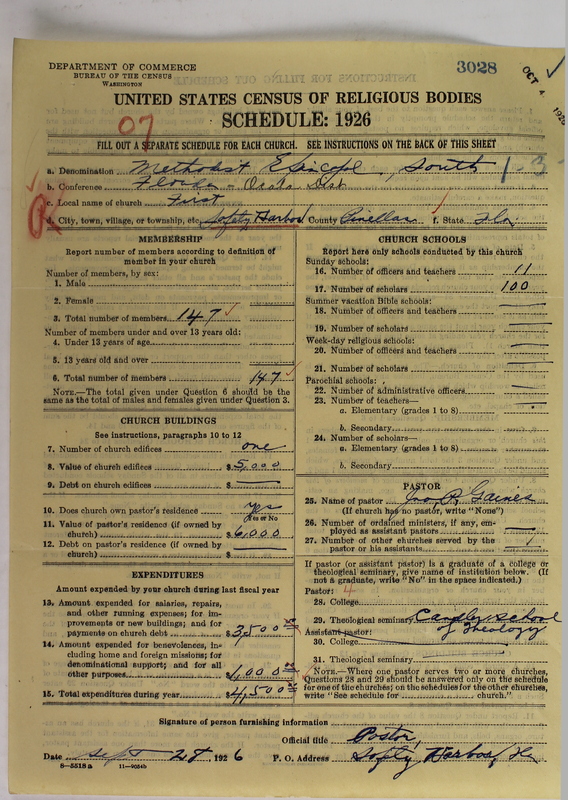 DEPARTMENT OF COMMERCE
BUREAU OF THE CENSUS
WASHINGTON
3028
OCT 4 1926
UNITED STATES CENSUS OF RELIGIOUS BODIES
SCHEDULE: 1926
07
FILL OUT A SEPARATE SCHEDULE FOR EACH CHURCH. SEE INSTRUCTIONS ON THE BACK OF THIS SHEET
a. Denomination Methodist Episcopl, South 1-3
b. Conference Florida - Ocala Dist
c. Local name of church First
d. City, town, village, or township, etc. Safety Harbor County Pinellas f. State Fla
MEMBERSHIP
Report number of members according to definition of member in your church
Number of members, by sex:
1. Male
2. Female
3. Total number of members 147
Number of members under and over 13 years old:
4. Under 13 years of age
5. 13 years old and over
6. Total number of members 147
NOTE.—The total given under Question 6 should be the same as the total of males and females given under Question 3.
CHURCH BUILDINGS
See instructions, paragraphs 10 to 12
7. Number of church edifices one
8. Value of church edifices $5,000
9. Debt on church edifices $
10. Does church own pastor's residence yes
(Yes or No
11. Value of pastor's residence (if owned by church) $6,000
12. Debt on pastor's residence (if owned by church) $
EXPENDITURES
Amount expended by your church during last fiscal year
13. Amount expended for salaries, repairs, and other running expenses; for improvements or new buildings; and for payments on church debt $3,500
14. Amount expended for benevolences, including home and foreign missions; for denominational support; and for all other purposes $1,000
15. Total expenditures during year $4,500
CHURCH SCHOOLS
Report here only schools conducted by this church
Sunday schools:
16. Number of officers and teachers 11
17. Number of scholars 100
Summer vacation Bible schools:
18. Number of officers and teachers
19. Number of scholars
Week-day religious schools:
20. Number of officers and teachers
21. Number of scholars
Parochial schools:
22. Number of administrative officers
23. Number of teachers—
a. Elementary (grades 1 to 8)
b. Secondary
24. Number of scholars—
a. Elementary (grades 1 to 8)
b. Secondary
PASTOR
25. Name of pastor Jno R. Gaines
(If church has no pastor, write "None")
26. Number of ordained ministers, if any, employed as assistant pastors
27. Number of other churches served by the pastor or his assistants 1
If pastor (or assistant pastor) is a graduate of a college or theological seminary, give name of institution below. (If not a graduate, write "No" in the space indicated.)
Pastor: 4
28. College
29. Theological seminary Candler School of Theology
Assistant pastor:
30. College
31. Theological seminary
NOTE.—Where one pastor serves two or more churches, Questions 28 and 29 should be answered only on the schedule for one of the churches; on the schedules for the other churches, write "See schedule for church."
Signature of person furnishing information
Official title Pastor,
Date Sept 28, 1926 P. O. Address Safety Harbor, Fla
8—5518a 11—9054b